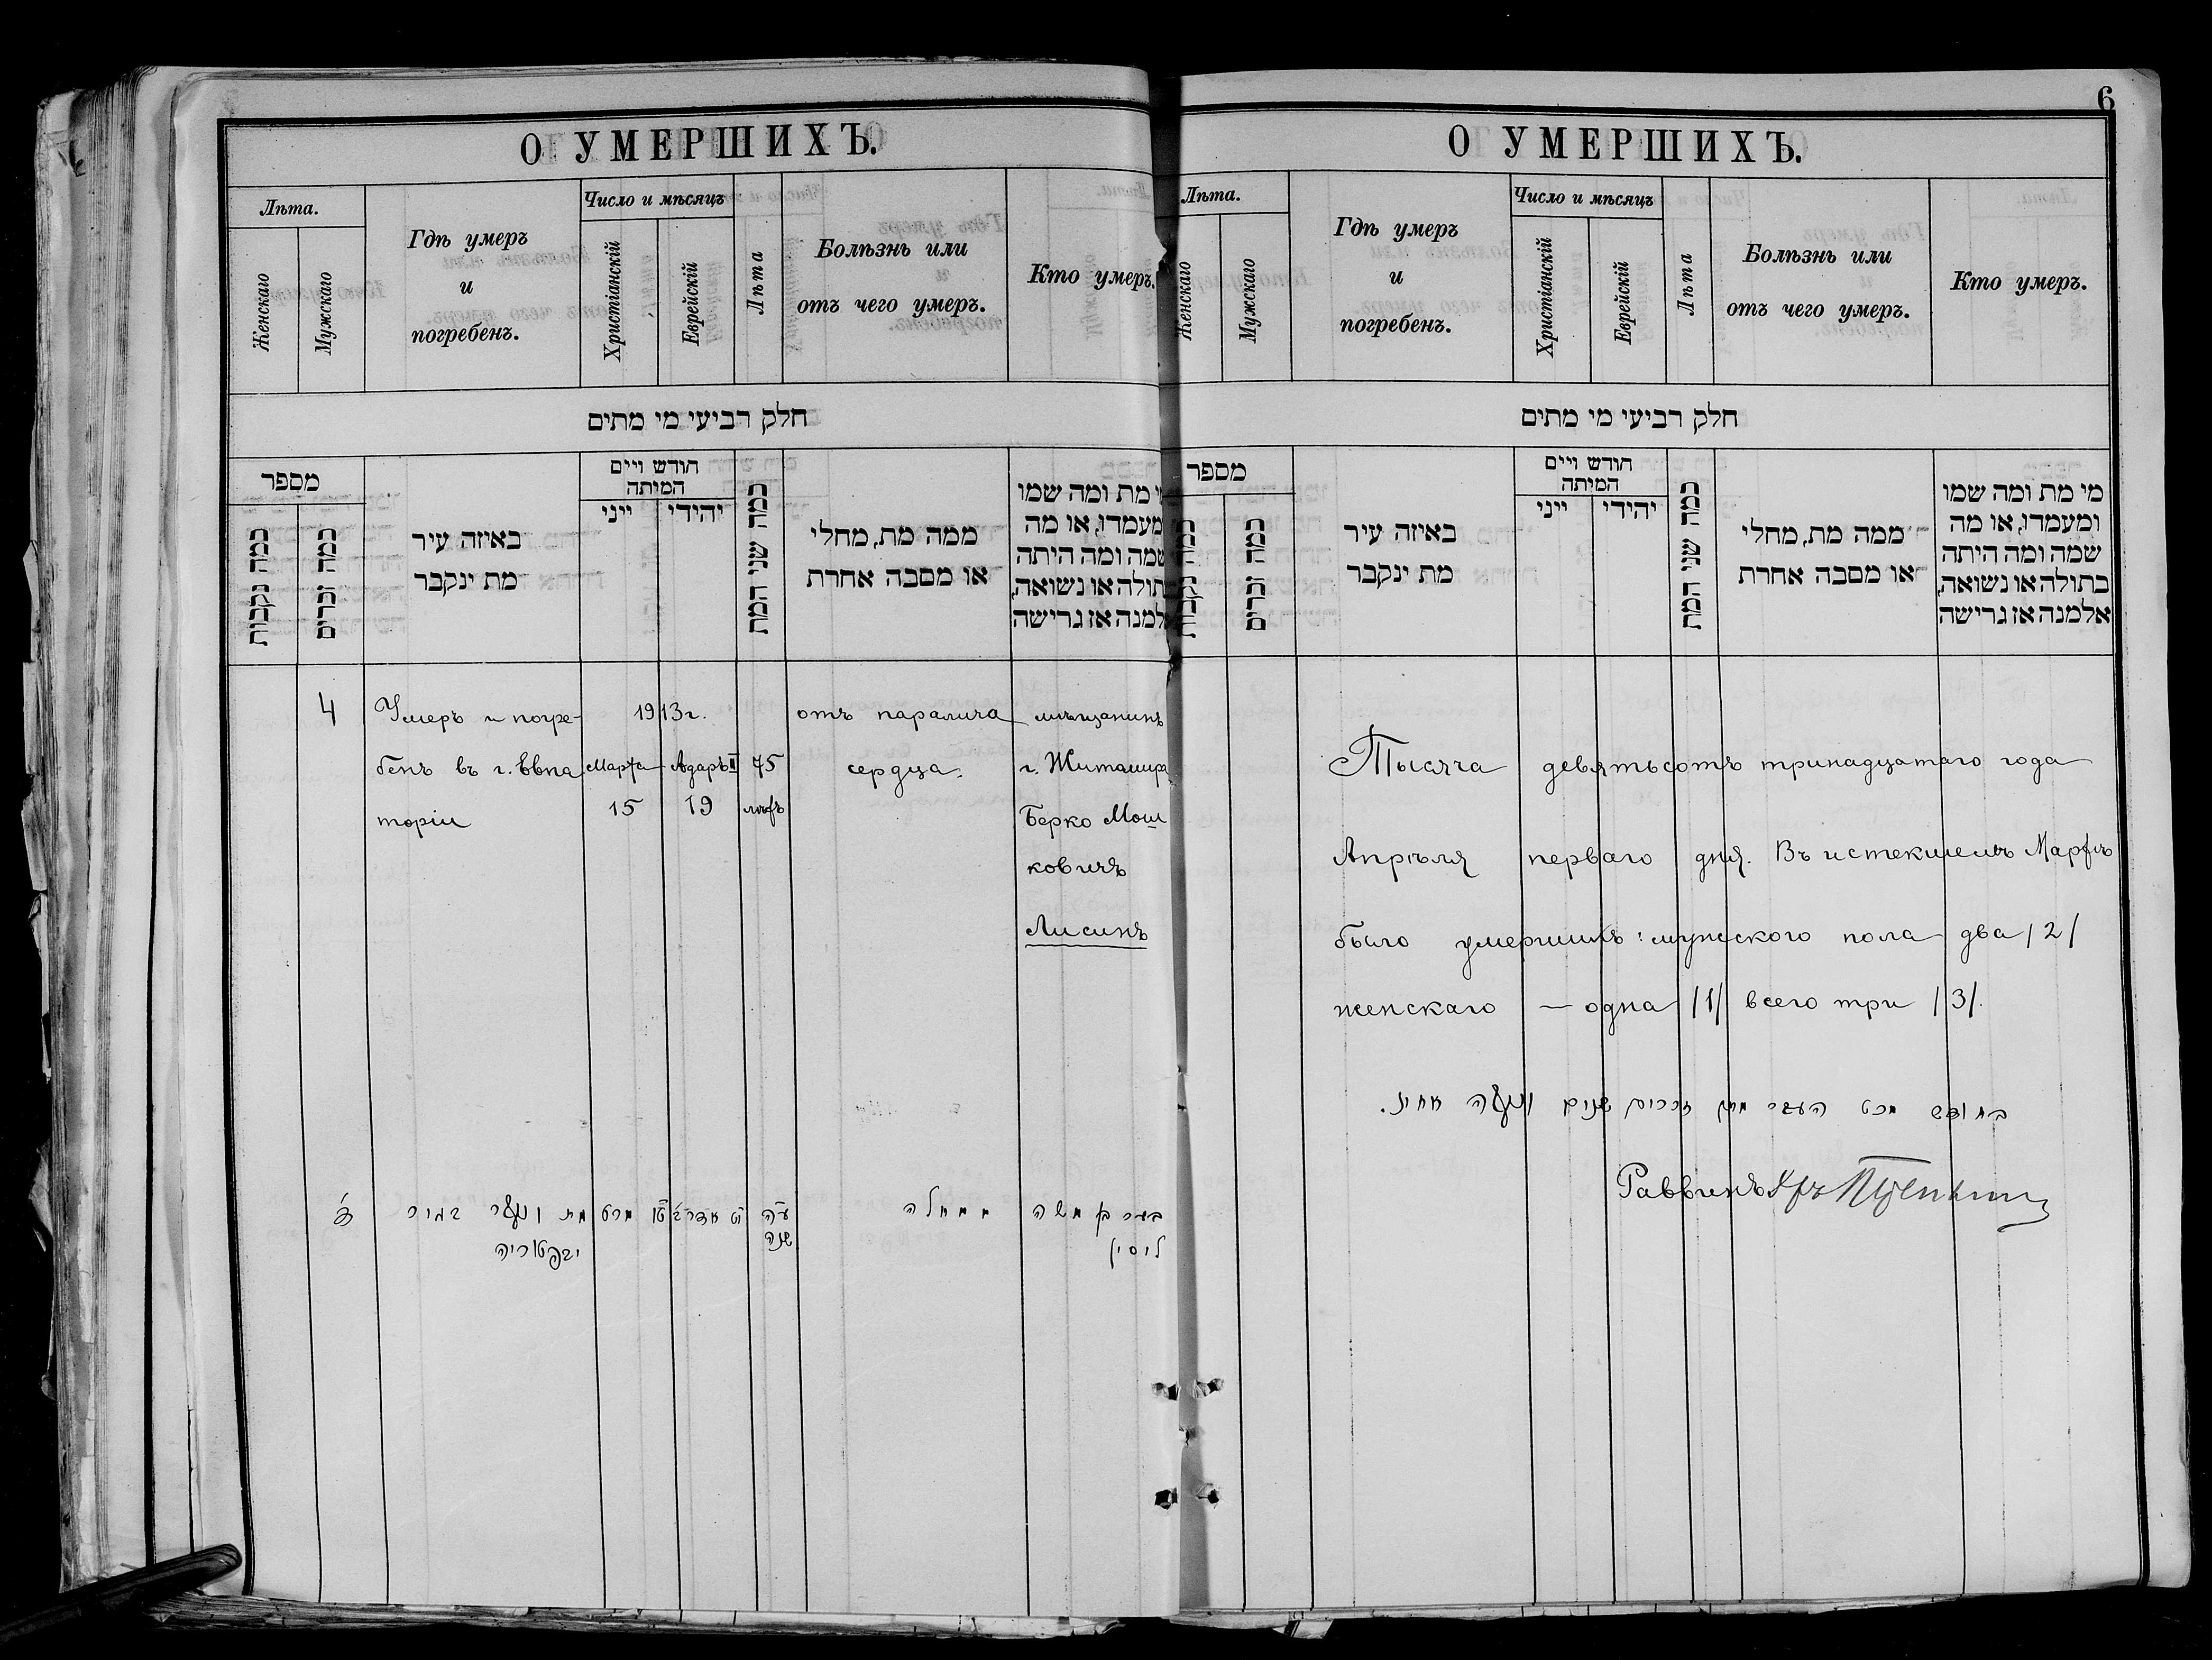 6
О УМЕРШИХЪ.
Лѣта.
Женскаго
Мужскаго
Гдѣ умеръ
и
погребенъ.
Число и мѣсяцъ
Христіанскій
Еврейскій
Лѣта
Болѣзнь или
отъ чего умеръ.
Кто умеръ.
חלק רביעי מי מתים
מספר
כמה נקבות
כמה זכרים
באיזה עיר
מת ינקבר
חודש ויים
המיתה
ייני
יהידי
כמה שני המת
ממה מת, מחלי
או מסבה אחרת
מי מת ומה שמו
ומעמדו, או מה
שמה ומה היתה
בתולה או נשואה,
אלמנה אז גרישה
4
Умеръ и погре-
бенъ въ г. Евпа
торіи
1913 г.
Марта
15
Адаръ II
19
75
лѣтъ
отъ паралича
сердца.
мѣщанинъ
г. Житомира
Берко Мош
ковичъ
Лисинъ
ד
מת ונקבר בעיר
יבפטוריה
טו מרט
יט אדר ב
עה
שנה
ממחלה
בער בן משה
ליסין
О УМЕРШИХЪ.
Лѣта.
Женскаго
Мужскаго
Гдѣ умеръ
и
погребенъ.
Число и мѣсяцъ
Христіанскій
Еврейскій
Лѣта
Болѣзнь или
отъ чего умеръ.
Кто умеръ.
חלק רביעי מי מתים
מספר
כמה נקבות
כמה זכרים
באיזה עיר
מת ינקבר
חודש ויים
המיתה
ייני
יהידי
כמה שני המת
ממה מת, מחלי
או מסבה אחרת
מי מת ומה שמו
ומעמדו, או מה
שמה ומה היתה
בתולה או נשואה,
אלמנה אז גרישה
Тысяча девятьсотъ тринадцатаго года
Апрѣля перваго дня. Въ истекшемъ Мартѣ
было умершихъ: мужского пола два /2/
женскаго — одна /1/ всего три /3/.
בחודש מרט העבר מתו זכרים שנים ונקבה אחת.
Раввинъ